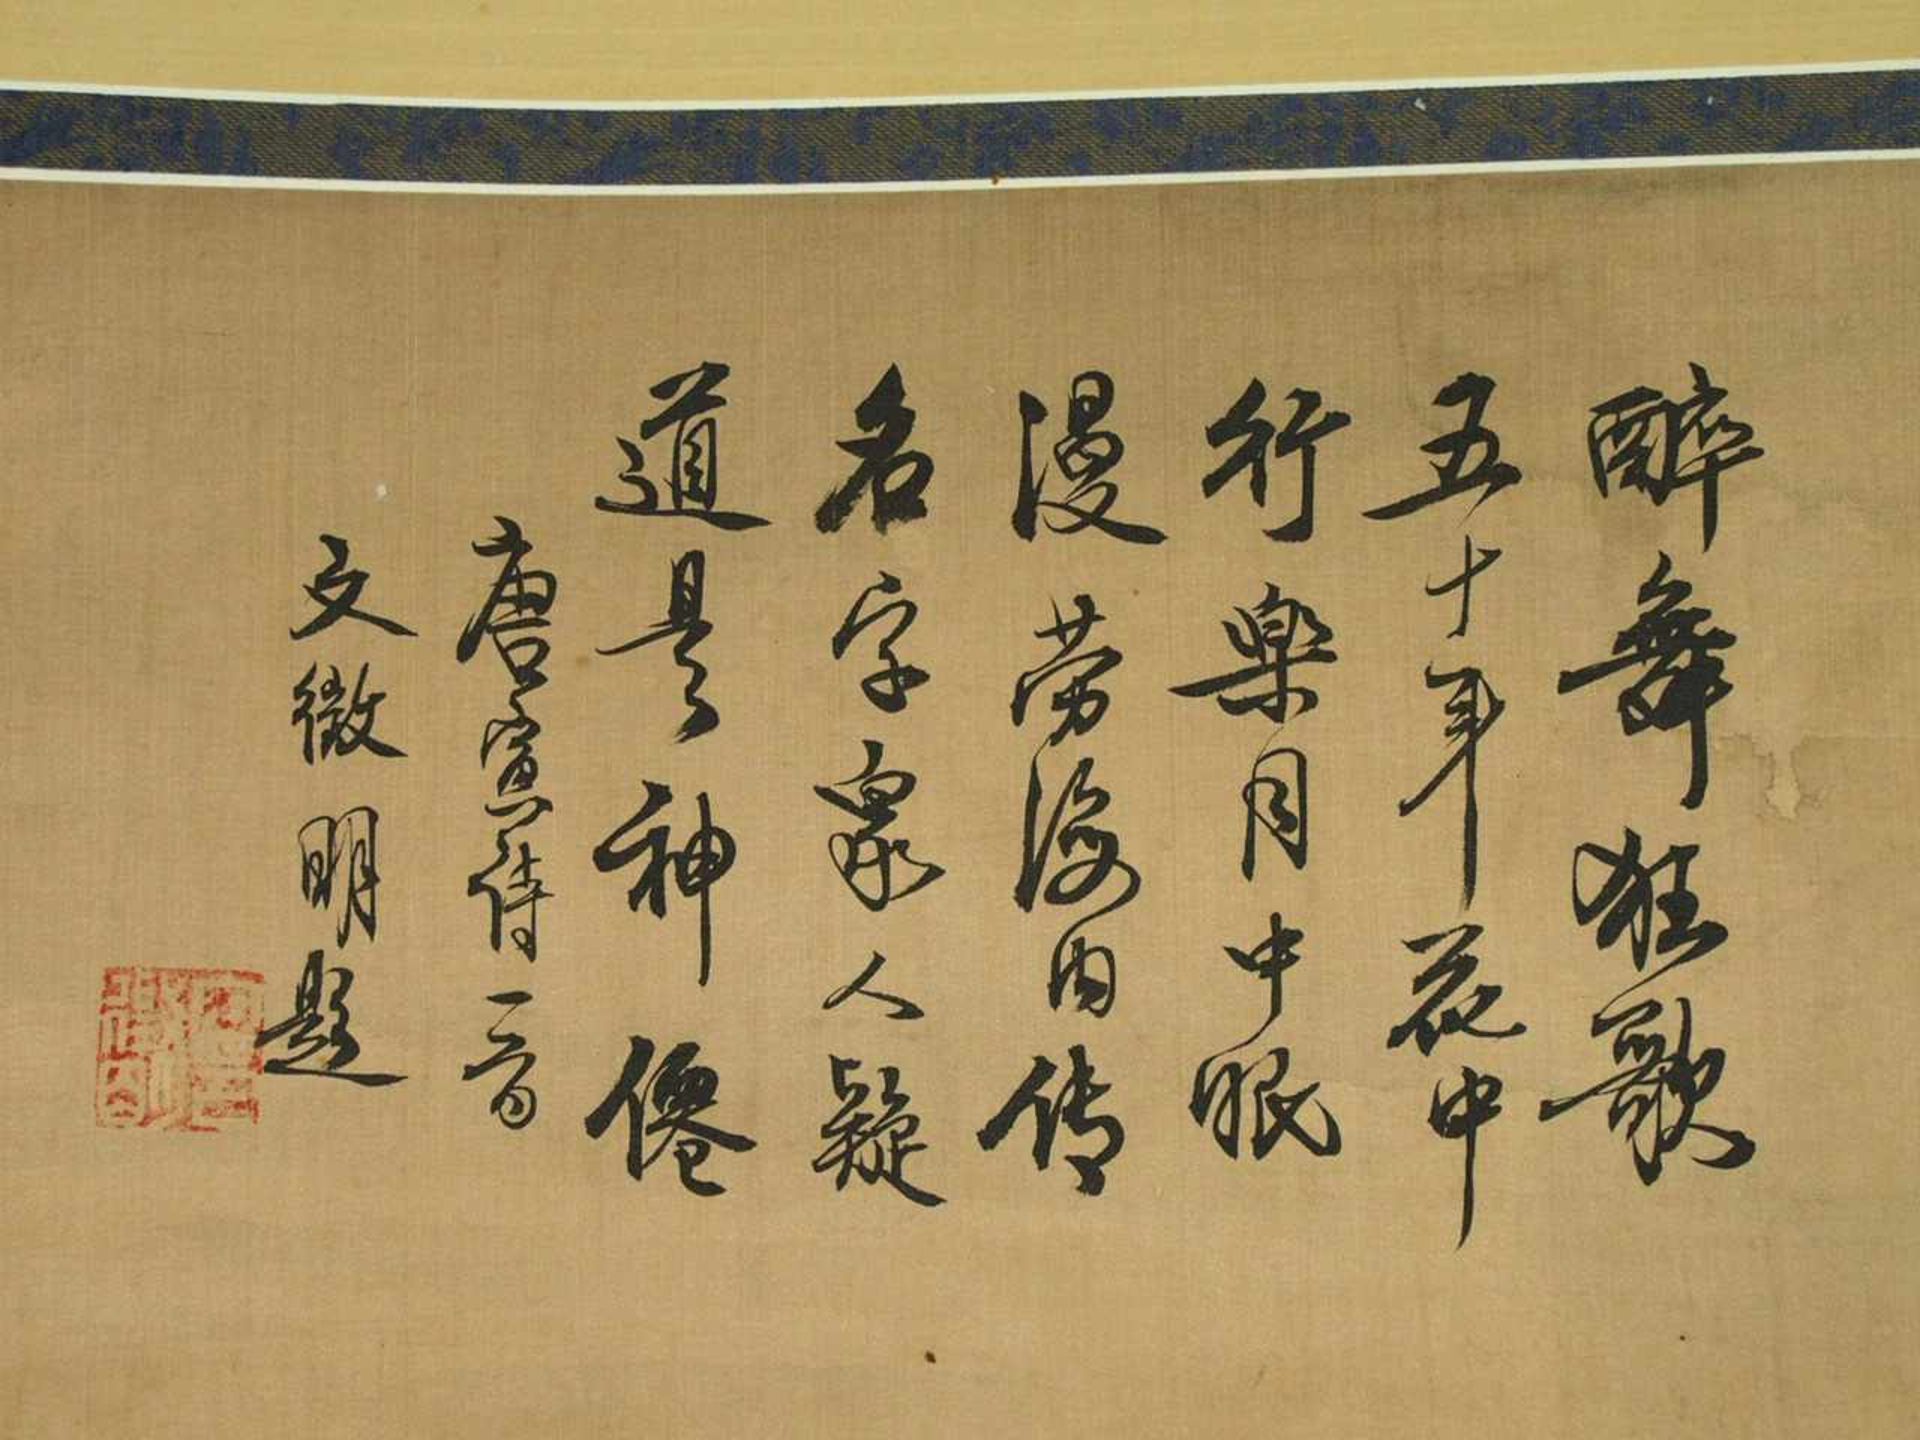 醉舞狂歌
五十年花中
行樂月中眠
漫劳海内传
名字寰人疑
道是神僊
唐寅诗一首
文徵明题